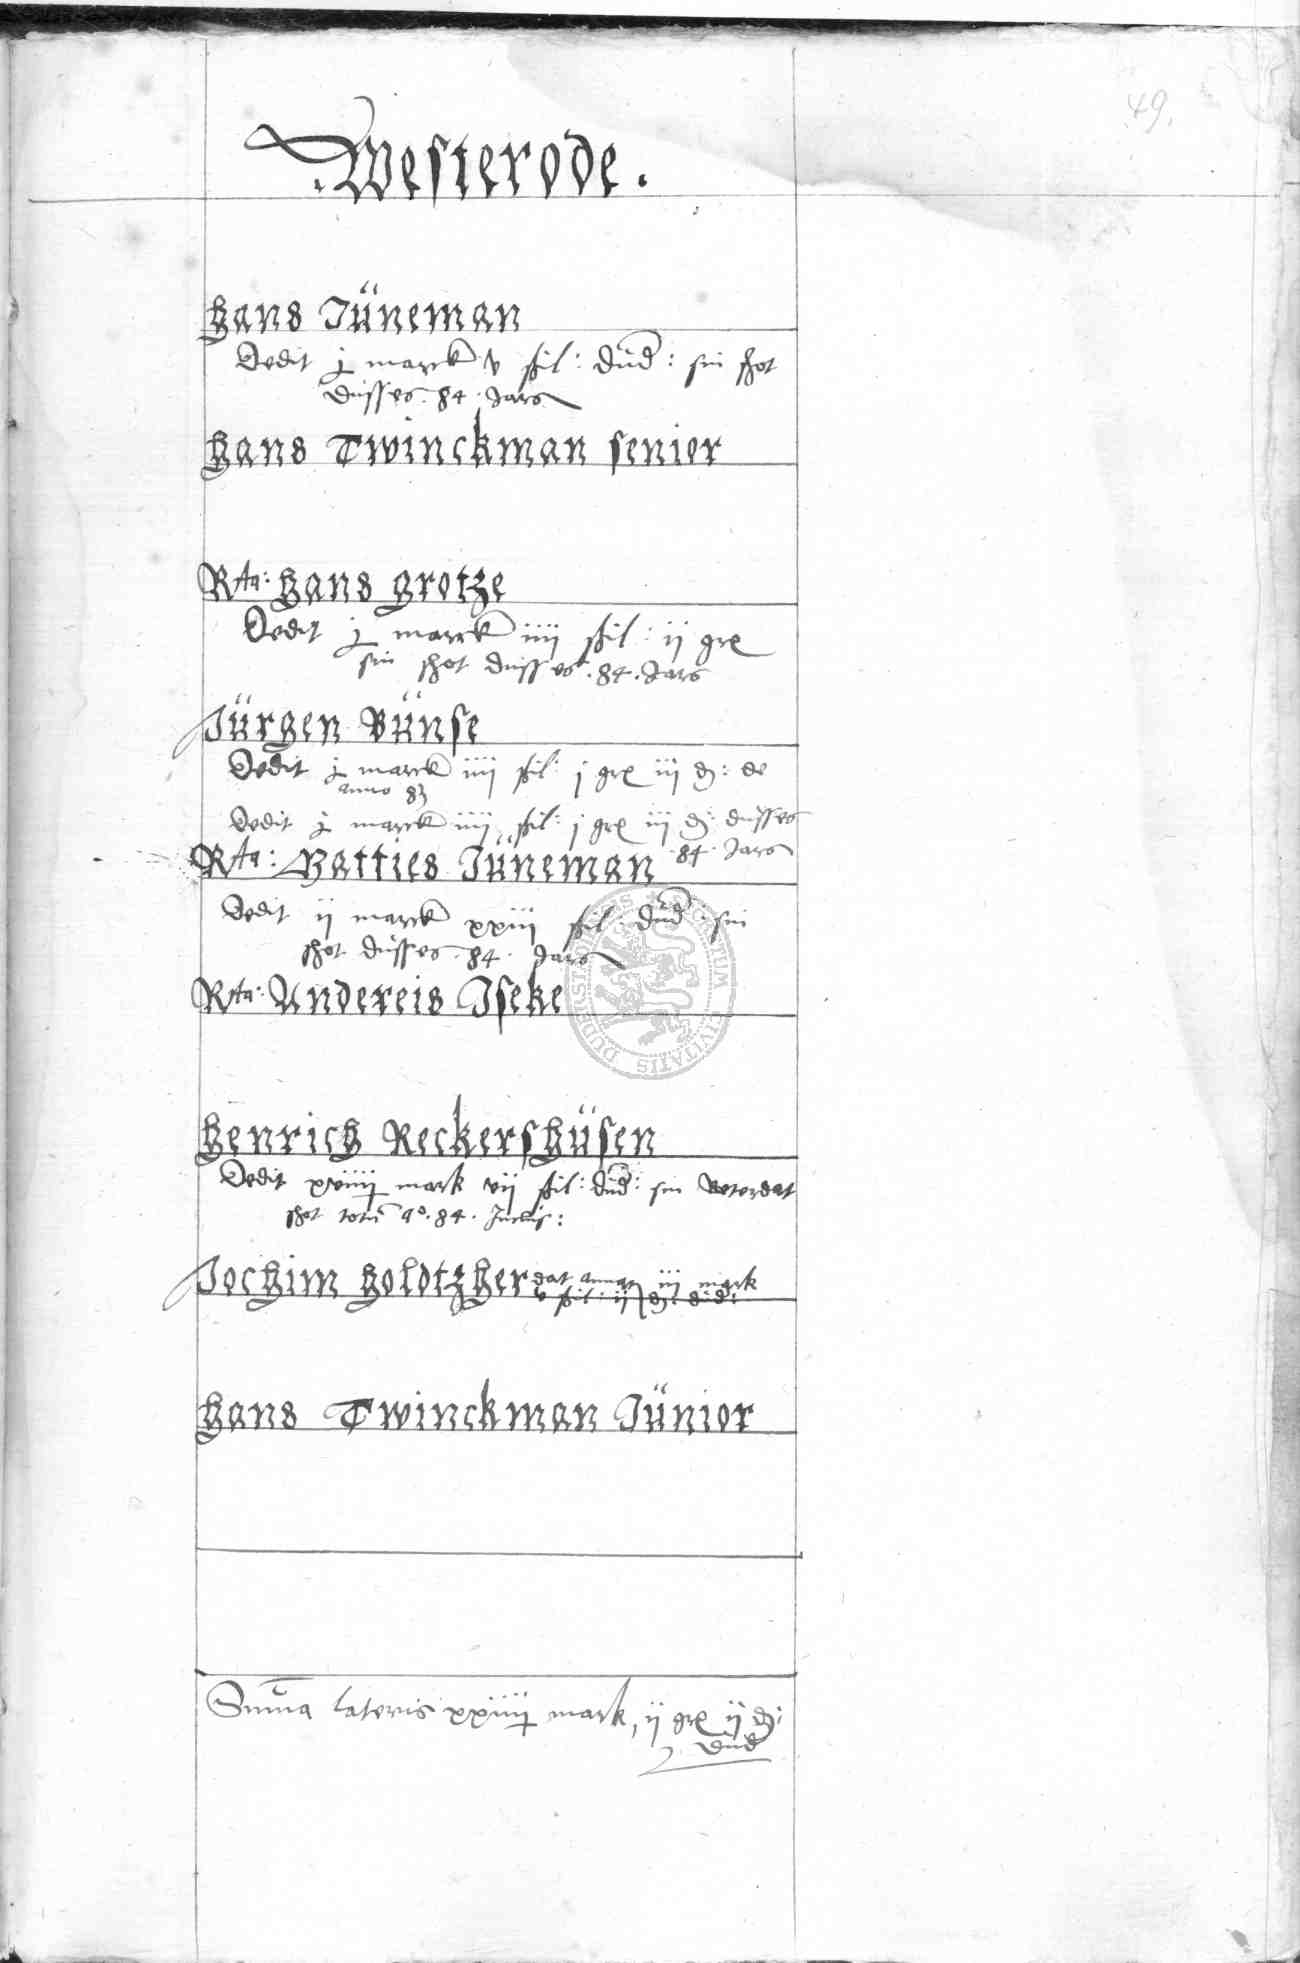 49.
.Westerode.
Hans Jüneman
Dedit j marck v ßil: dud: sin schot
dusses . 84 . Jars
Hans Twinckman senier
Rta: Hans grotze
Dedit j marck iiij ßil: ij gre
sin schot dusses . 84 . Jars
Jürgen Bünse
Dedit j marck iiij ßil: j gre iij d: de
anno 83
Dedit j marck iiij ßil: j gre iij d: dusses
84 . Jars
Rta: Matties Jüneman
Dedit ij marck xxiij ßil: dud: sin
schot dusses . 84 . Jars
Rta: Andereis Iseke
Henrich Reckershüsen
Dedit xviiij mark vij ßil: dud: sin
schot totu ao . 84 . Inclus:
Jochim Holdtzher dat iij mark
v ßil: ij d: dud:
Hans Twinckman Jünior
Summa lateris xxiiij mark, ij gre ij d:
dud
DUDERSTADIENSIS SECRETUM CIVITATIS